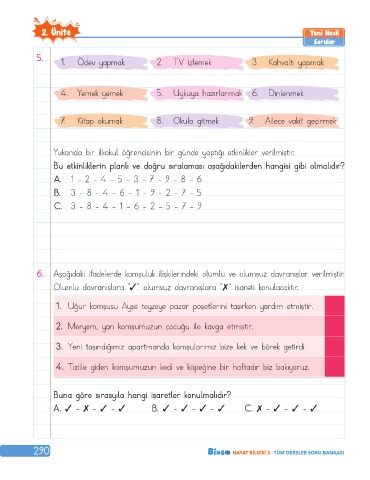 2. Ünite
Yeni Nesil
Sorular
5.
1. Ödev yapmak
2. TV izlemek
3. Kahvaltı yapmak
4. Yemek yemek
5. Uykuya hazırlanmak
6. Dinlenmek
7. Kitap okumak
8. Okula gitmek
9. Ailece vakit geçirmek
Yukarıda bir ilkokul öğrencisinin bir günde yaptığı etkinlikler verilmiştir.
Bu etkinliklerin planlı ve doğru sıralaması aşağıdakilerden hangisi gibi olmalıdır?
A. 1 - 2 - 4 - 5 - 3 - 7 - 9 - 8 - 6
B. 3 - 8 - 4 - 6 - 1 - 9 - 2 - 7 - 5
C. 3 - 8 - 4 - 1 - 6 - 2 - 5 - 7 - 9
6. Aşağıdaki ifadelerde komşuluk ilişkilerindeki olumlu ve olumsuz davranışlar verilmiştir.
Olumlu davranışlara "✓" olumsuz davranışlara "✗" işareti konulacaktır.
1. Uğur komşusu Ayşe teyzeye pazar poşetlerini taşırken yardım etmiştir.
2. Meryem, yan komşumuzun çocuğu ile kavga etmiştir.
3. Yeni taşındığımız apartmanda komşularımız bize kek ve börek getirdi.
4. Tatile giden komşumuzun kedi ve köpeğine bir haftadır biz bakıyoruz.
Buna göre sırasıyla hangi işaretler konulmalıdır?
A. ✓ - ✗ - ✓ - ✓ B. ✓ - ✓ - ✓ - ✓ C. ✗ - ✓ - ✓ - ✓
290
BİNGO HAYAT BİLGİSİ 3 - TÜM DERSLER SORU BANKASI